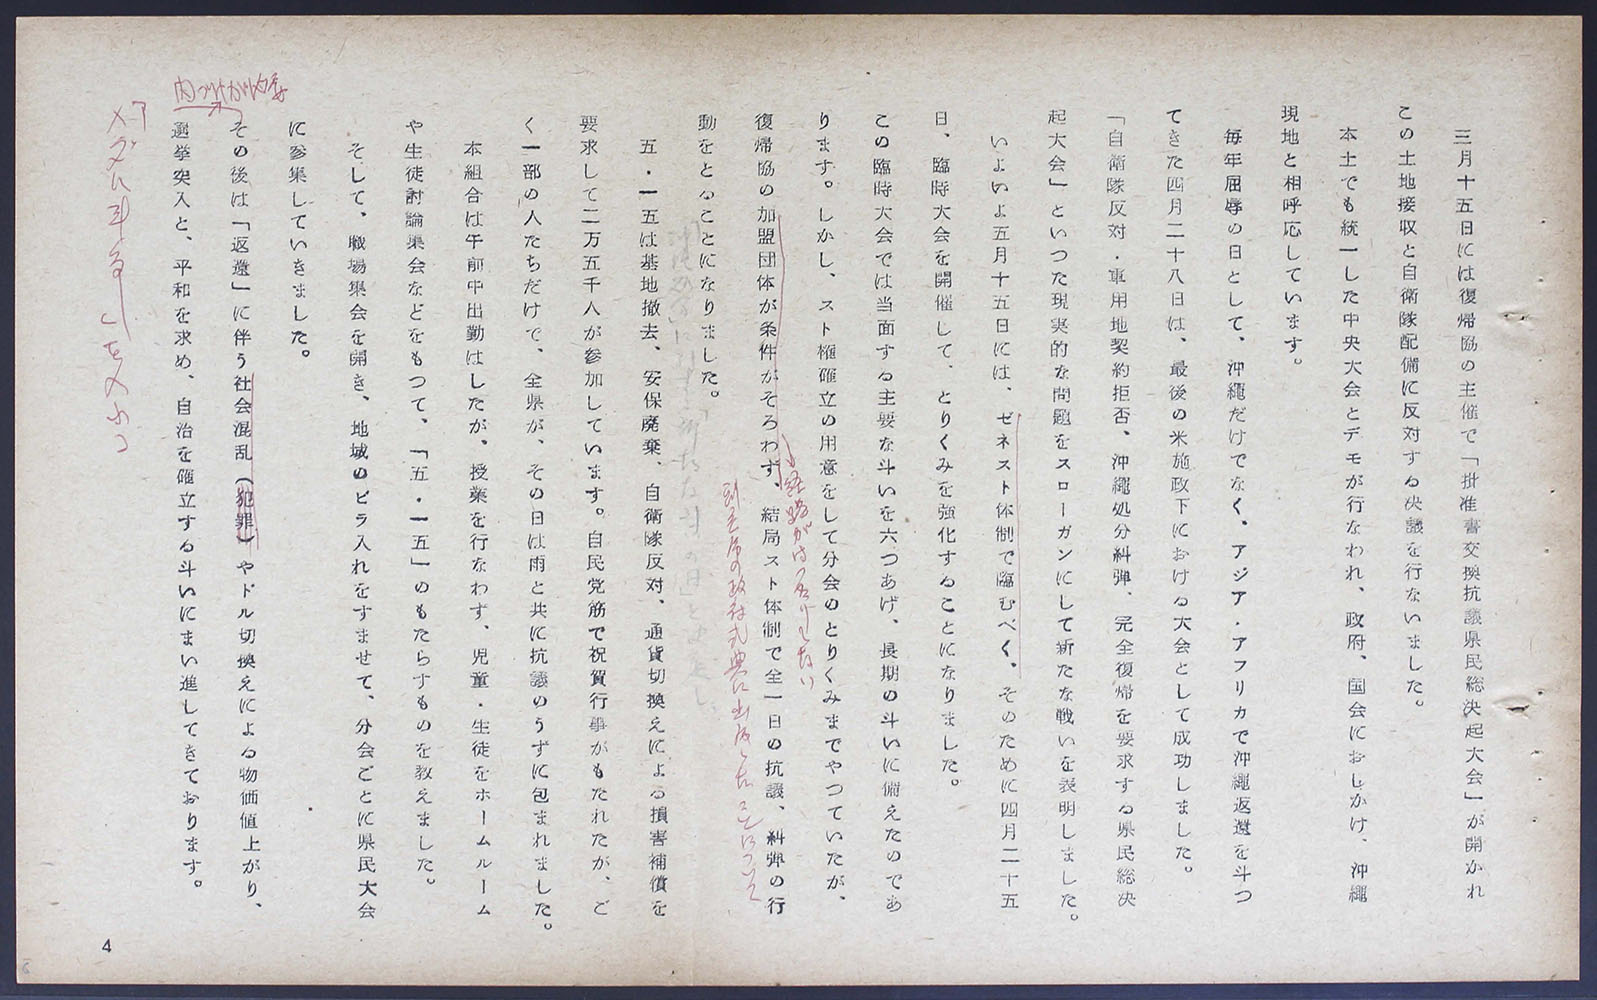 三月十五日には復帰協の主催で「批准書交換抗議県民総決起大会」が開かれ
この土地接収と自衛隊配備に反対する決議を行ないました。
本土でも統一した中央大会とデモが行なわれ、政府、国会におしかけ、沖縄
現地と相呼応しています。
毎年屈辱の日として、沖縄だけでなく、アジア・アフリカで沖縄返還を斗つ
てきた四月二十八日は、最後の米施政下における大会として成功しました。
「自衛隊反対・軍用地契約拒否、沖縄処分糾弾、完全復帰を要求する県民総決
起大会」といつた現実的な問題をスローガンにして新たな戦いを表明しました。
いよいよ五月十五日には、ゼネスト体制で臨むべく、そのために四月二十五
日、臨時大会を開催して、とりくみを強化することになりました。
この臨時大会では当面する主要な斗いを六つあげ、長期の斗いに備えたのであ
ります。しかし、スト権確立の用意をして分会のとりくみまでやつていたが、
復帰協の加盟団体が条件がそろわず、結局スト体制で全一日の抗議、糾弾の行
動をとることになりました。
五・一五は基地撤去、安保廃棄、自衛隊反対、通貨切換えによる損害補償を
要求して二万五千人が参加しています。自民党筋で祝賀行事がもたれたが、ご
く一部の人たちだけで、全県が、その日は雨と共に抗議のうずに包まれました。
本組合は午前中出勤はしたが、授業を行なわず、児童・生徒をホームルーム
や生徒討論集会などをもつて、「五・一五」のもたらすものを教えました。
そして、職場集会を開き、地域のビラ入れをすませて、分会ごとに県民大会
に参集していきました。
その後は「返還」に伴う社会混乱（犯罪）やドル切換えによる物価値上がり、
選挙突入と、平和を求め、自治を確立する斗いにまい進してきております。
4